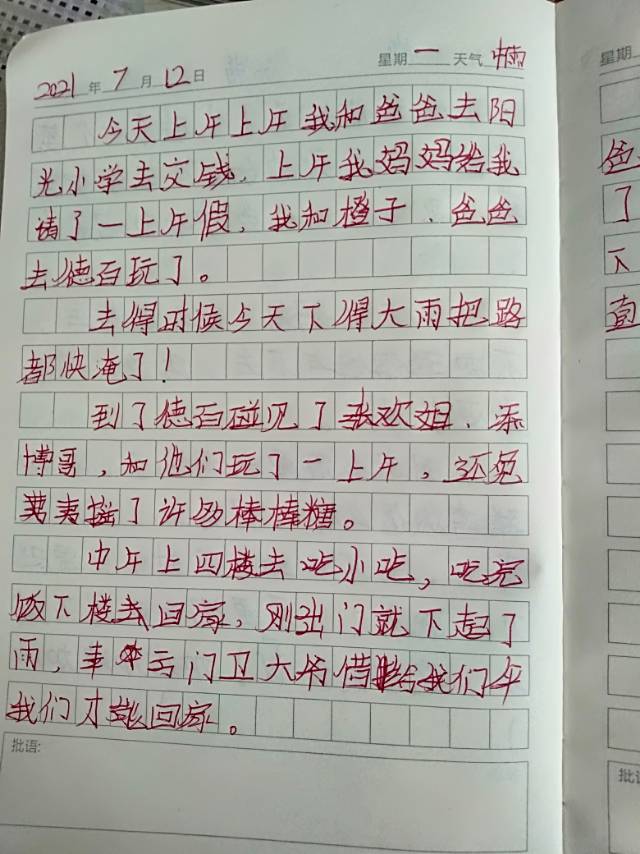 2021年7月12日 星期一 天气中雨
星期
今天上午上午我和爸爸去阳
光小学去交钱，上午我妈妈给我
请了一上午假，我和橙子、爸爸
去德百玩了。
去得时候今天下得大雨把路
都快淹了！
到了德百碰见了张欢姐、添
博哥，和他们玩了一上午，还免
费摇了许多棒棒糖。
中午上四楼去吃小吃，吃完
饭下楼去回家，刚出门就下起了
雨，幸亏门卫大爷借给我们伞
我们才能回家。
批语:
爸
了
下
直
批语